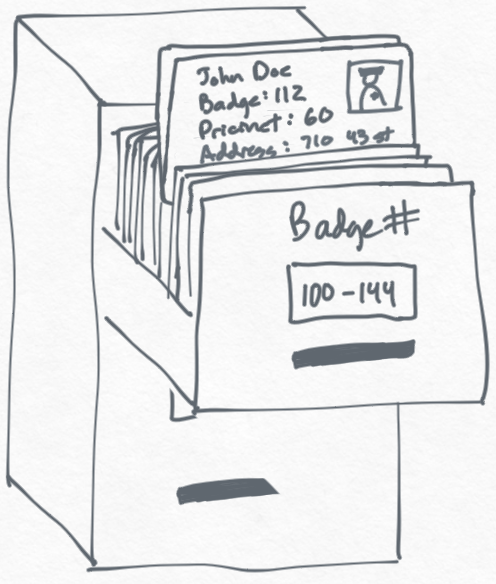 John Doe
Badge: 112
Pricinct: 60
Address: 710 43 st
Badge#
100-144